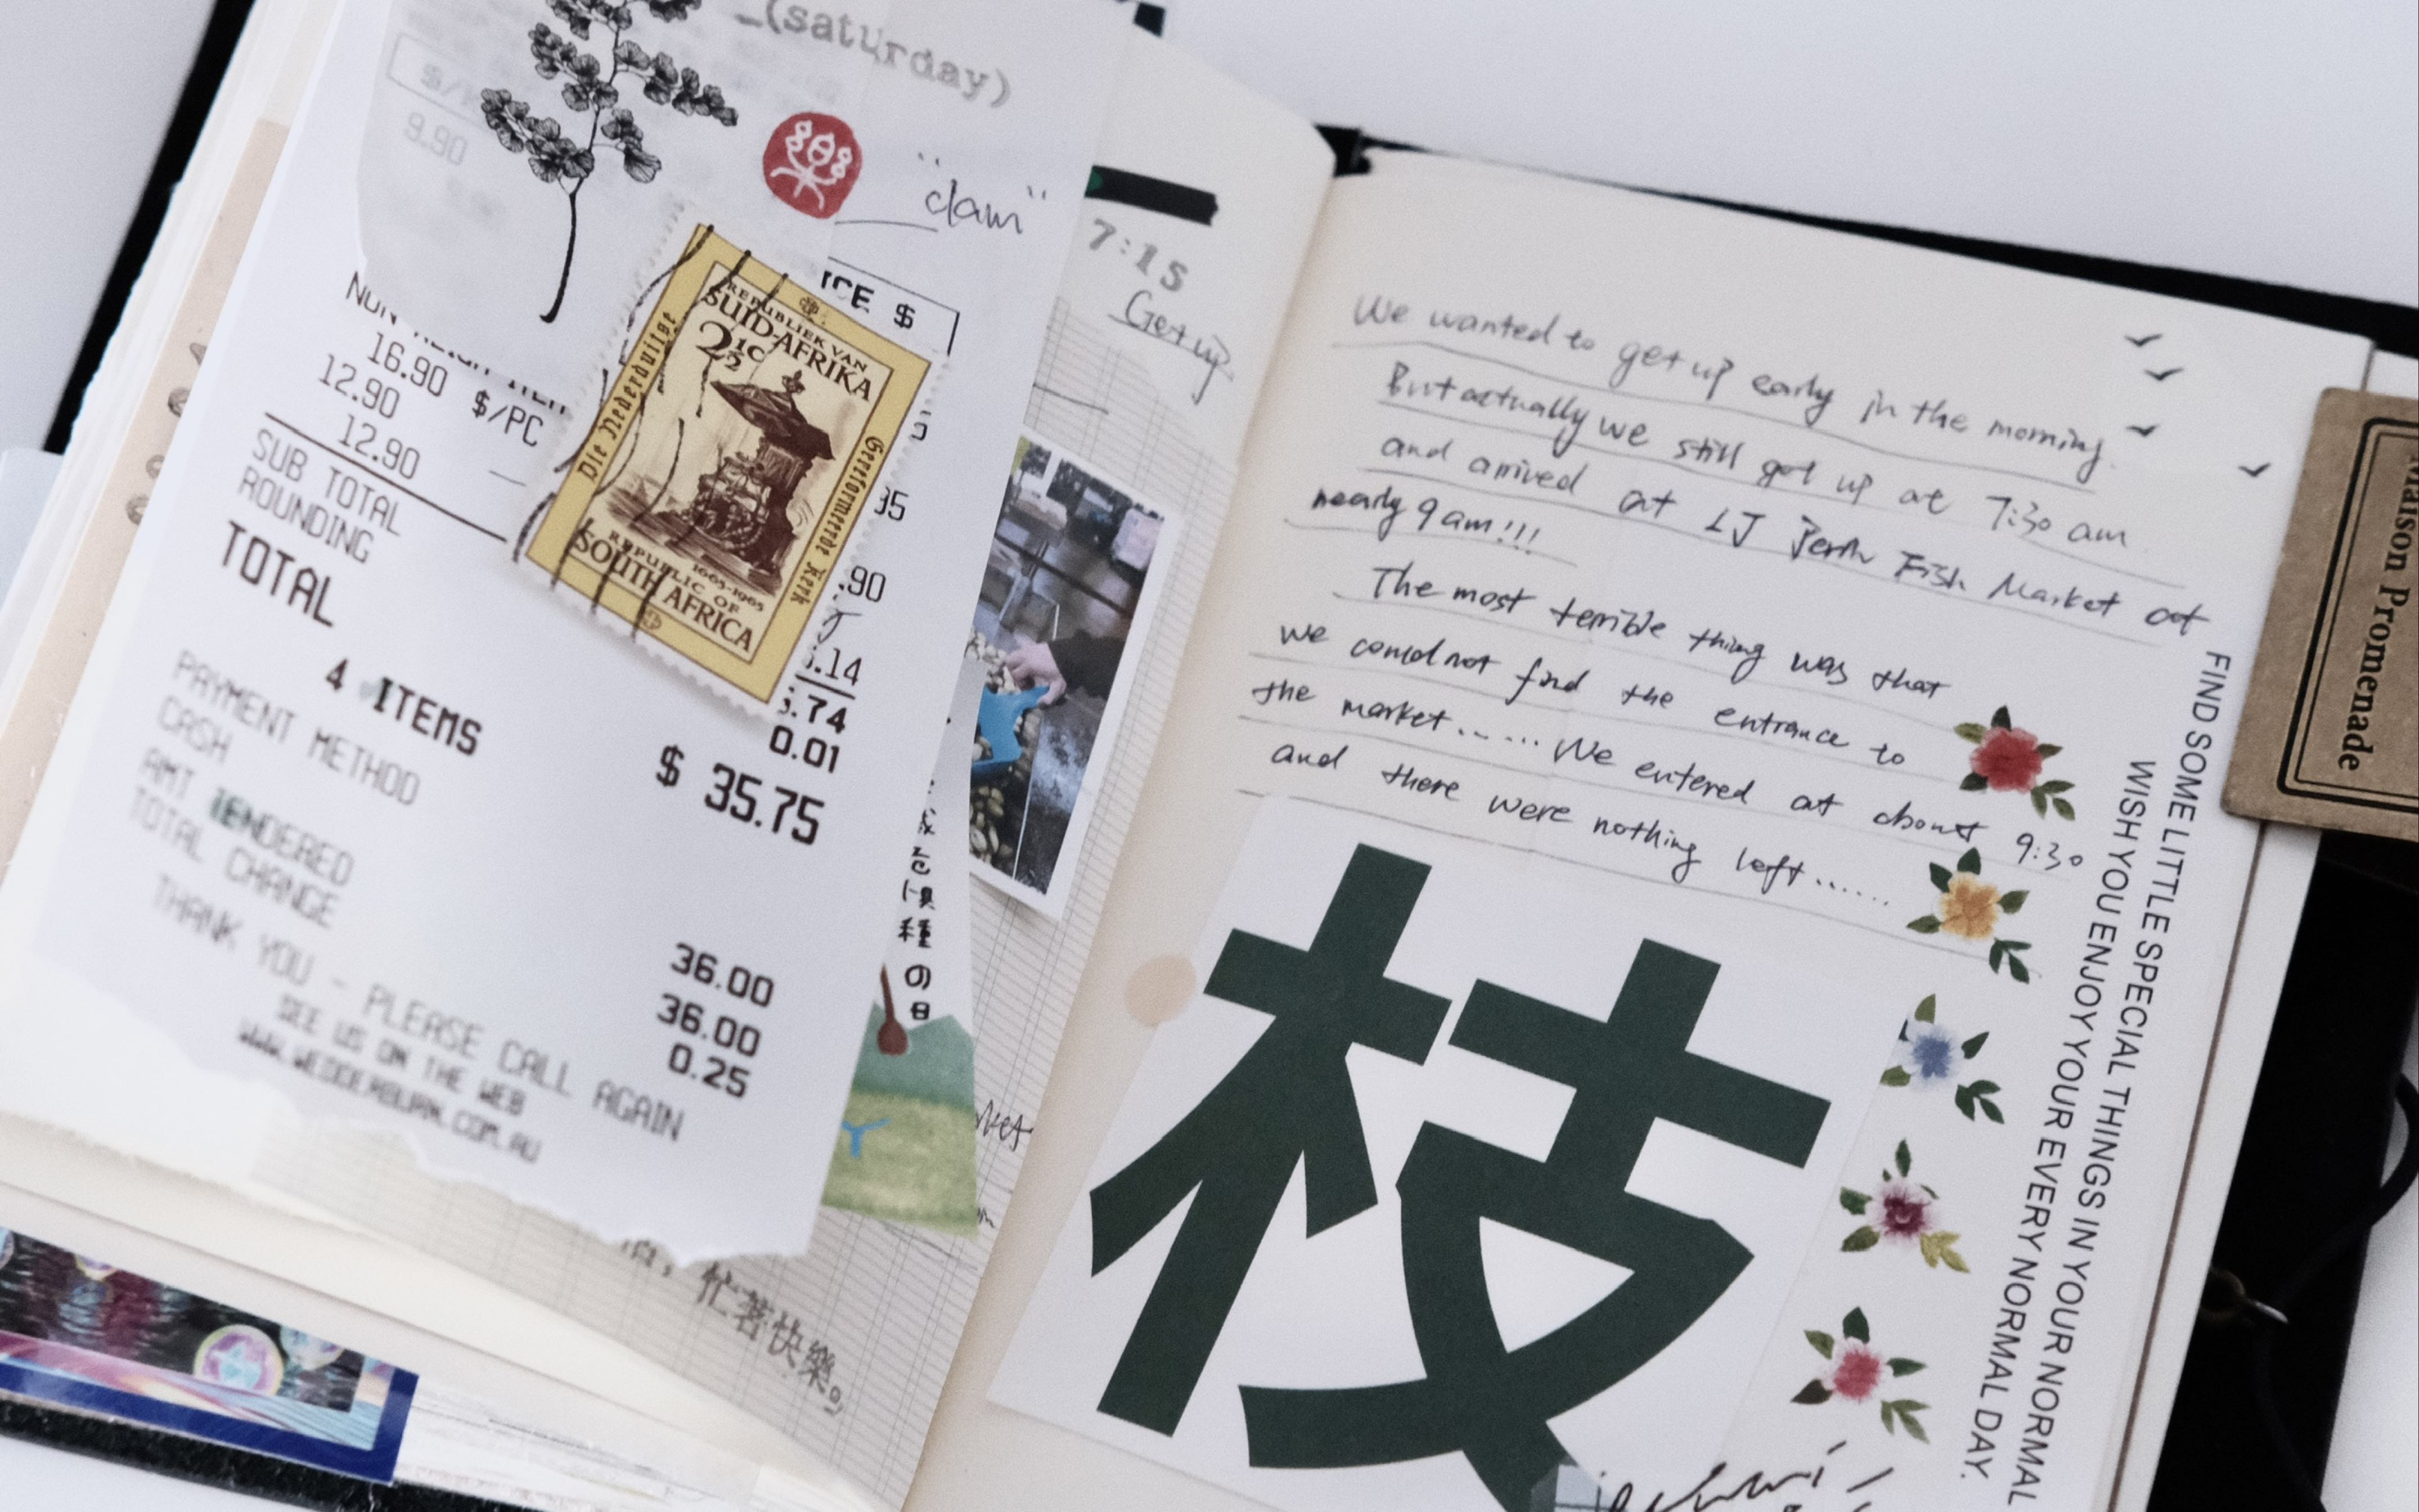 (saturday)
$/
9.90
"clam"
ICE $
16.90 $/PC
12.90
12.90
SUB TOTAL
ROUNDING
TOTAL
.90
.14
.74
0.01
4 ITEMS
$ 35.75
PAYMENT METHOD
CASH
AMT TENDERED
36.00
36.00
TOTAL CHANGE
0.25
THANK YOU - PLEASE CALL AGAIN
SEE US ON THE WEB
WWW.WEDDERBURN.COM.AU
REPUBLIEK VAN
SUID-AFRIKA
2½c
Die Nederduitse
Gereformeerde Kerk
1665-1965
REPUBLIC OF
SOUTH AFRICA
7:15
Get up
種の日
忙著快樂。
We wanted to get up early in the morning.
But actually we still got up at 7:30 am
and arrived at LJ Perth Fish Market at
nearly 9 am!!!
The most terrible thing was that
we could not find the entrance to
the market...... We entered at about 9:30
and there were nothing left.....
枝
FIND SOME LITTLE SPECIAL THINGS IN YOUR NORMAL
WISH YOU ENJOY YOUR EVERY NORMAL DAY.
Maison Promenade